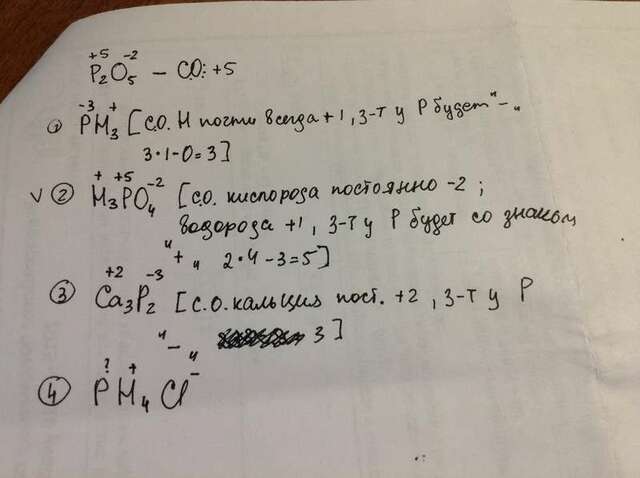 +5 -2
P₂O₅ – СО: +5
-3 +
① PH₃ [с.о. Н почти всегда +1, з-т у Р будет "–"
3·1-0=3]
+ +5 -2
V ② H₃PO₄ [с.о. кислорода постоянно -2;
водорода +1, з-т у Р будет со знаком
"+" 2·4-3=5]
+2 -3
③ Ca₃P₂ [с.о. кальция пост. +2, з-т у Р
"–" 3]
? + -
④ PH₄Cl